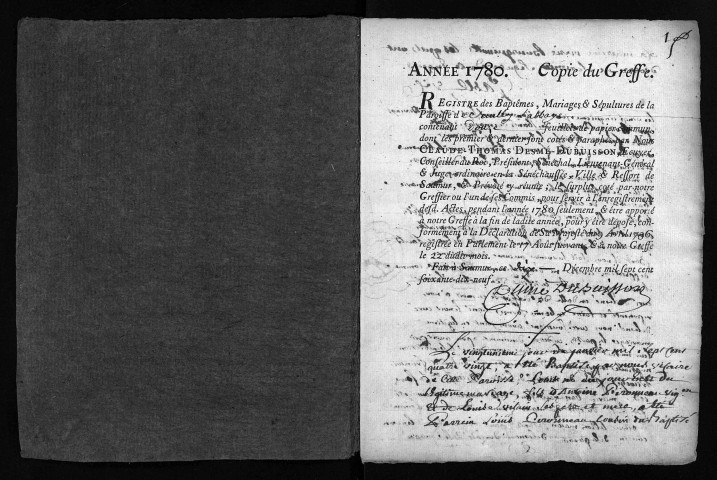 1
ANNÉE 1780. Copie du Greffe.
REGISTRE des Baptêmes, Mariages & Sépultures de la
Paroisse de
contenant feuillets de papier commun,
dont les premier & dernier sont cotés & paraphés par Nous
CLAUDE-THOMAS DESMÉ-DUBUISSON, Ecuyer,
Conseiller du Roi, Président, Sénéchal, Lieutenant-Général
& Juge ordinaire en la Sénéchaussée, Ville & Ressort de
Saumur, & Prévôté y réunie; le surplus coté par notre
Greffier ou l'un de ses Commis, pour servir à l'enregistrement
desd. Actes, pendant l'année 1780 seulement, & être apporté
à notre Greffe à la fin de ladite année, pour y être déposé, con-
formément à la Déclaration de Sa Majesté du 9 Avril 1736,
registrée en Parlement le 17 Août suivant, & à notre Greffe
le 22 dudit mois.
Fait à Saumur, ce Décembre mil sept cent
soixante-dix-neuf.
Desmé Dubuisson
Le vingtunième jour de janvier mil sept cens
quatre vingt, a été Baptisé par nous vicaire
de cette Paroisse Louis né du
légitime mariage, fils d'Antoine
et de Louise ses père et mère, a été
Parrein Louis cousin du Baptisé